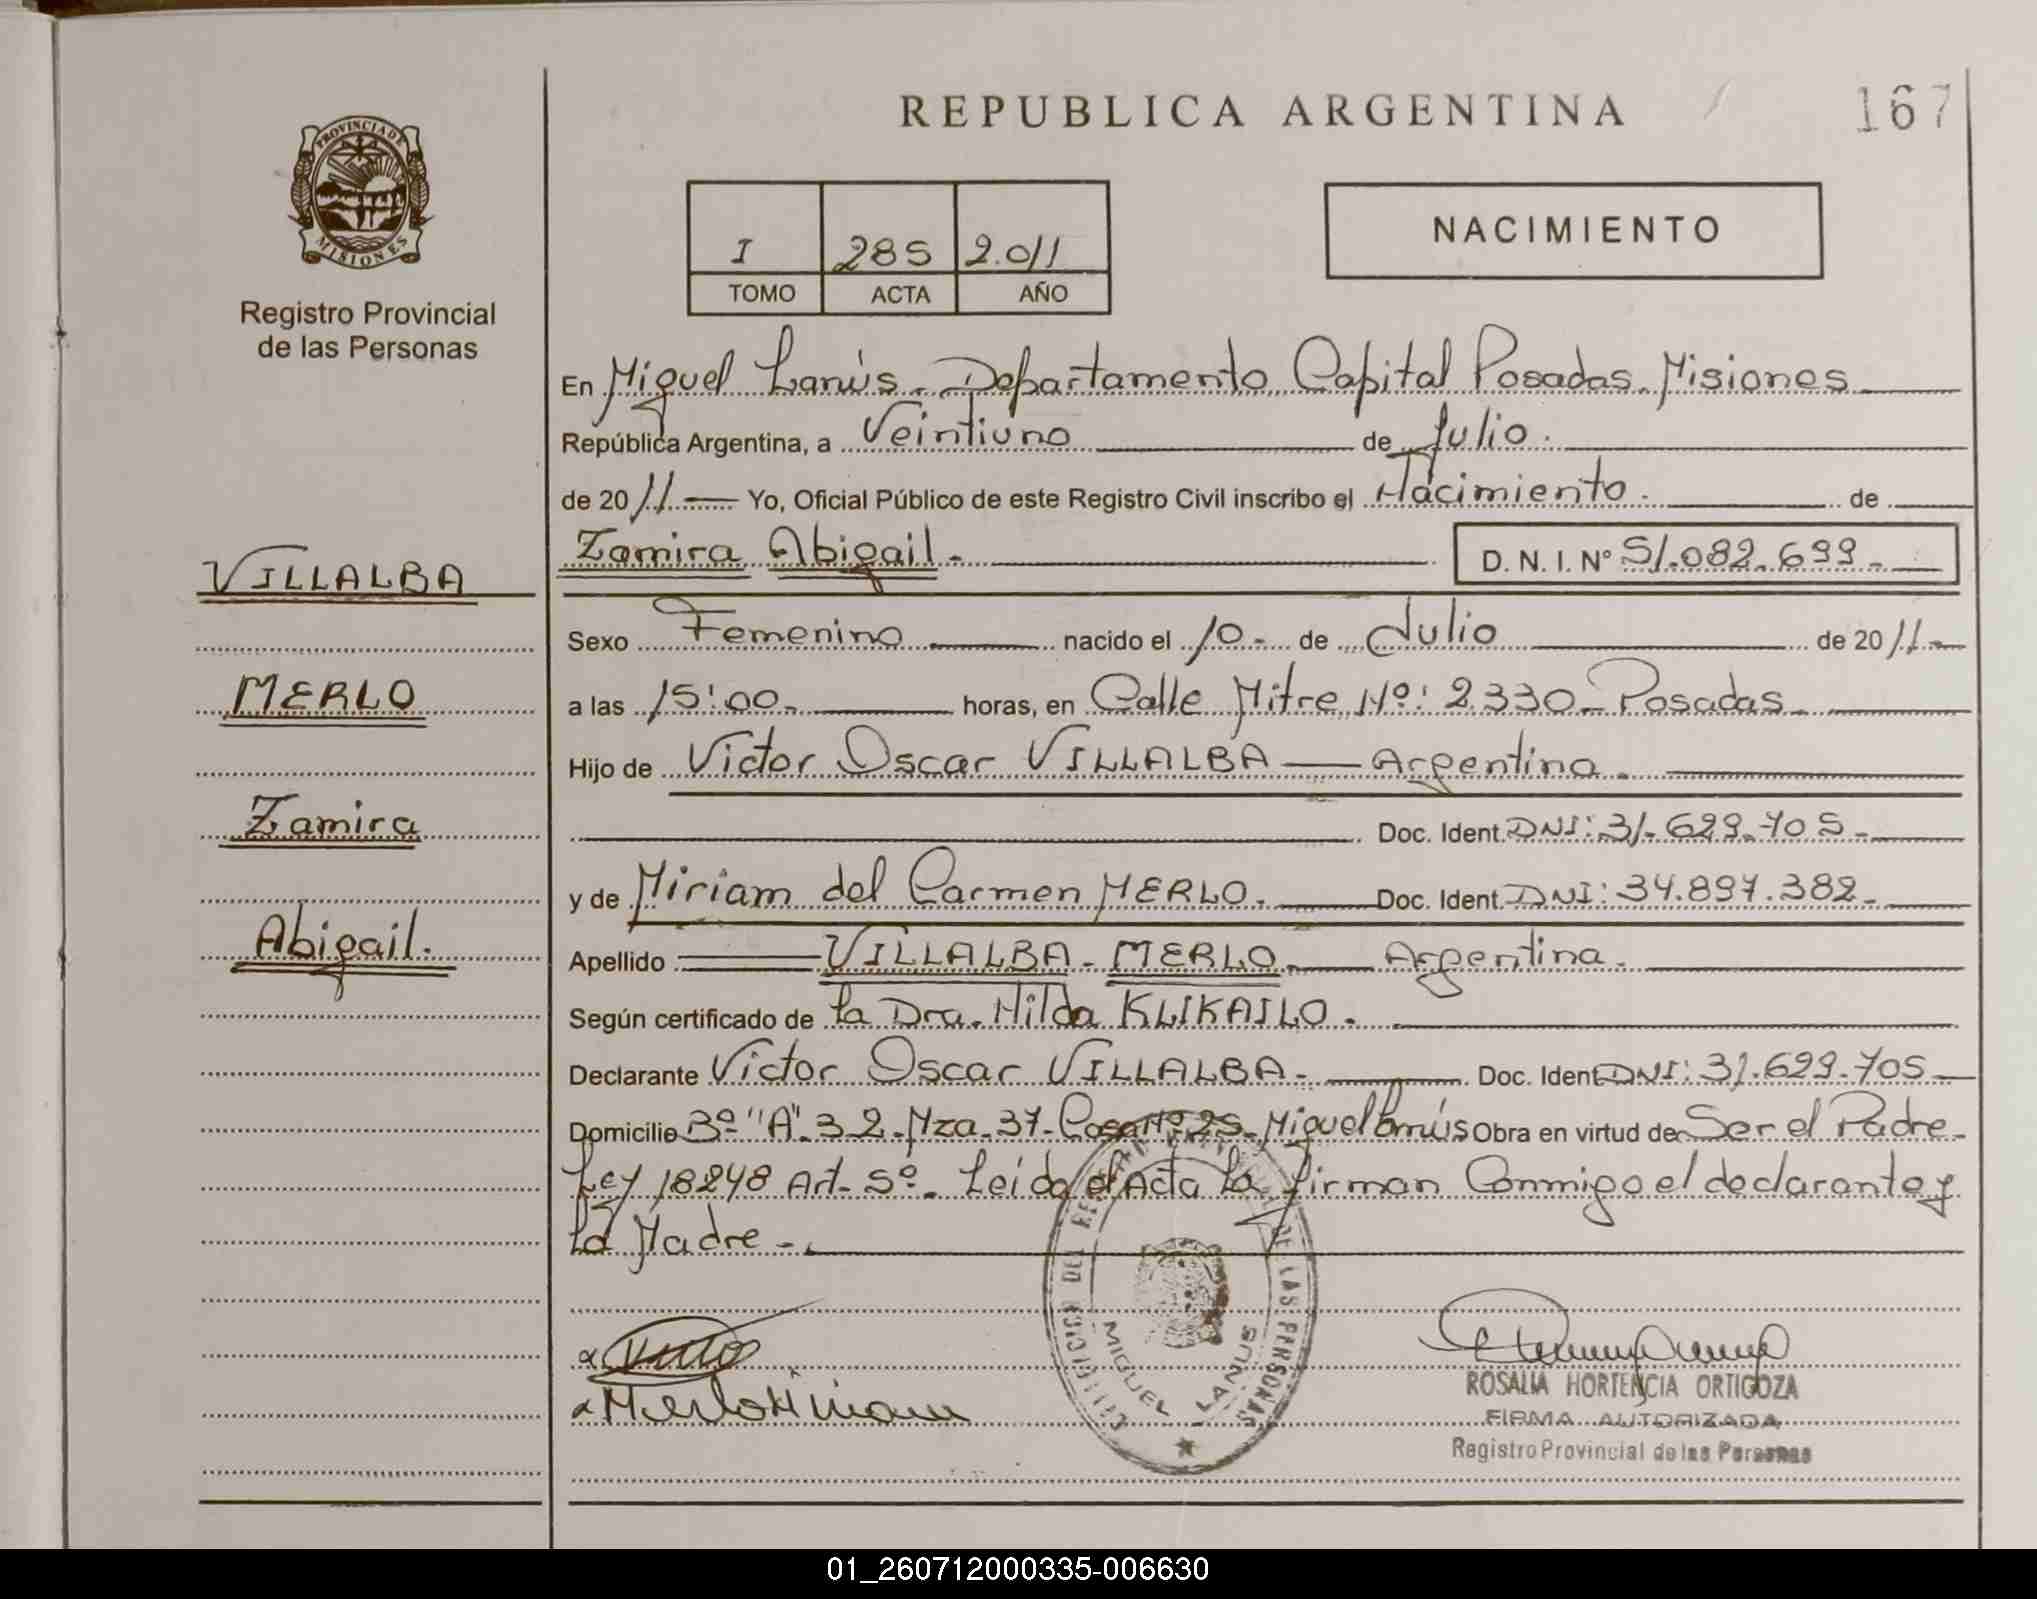 REPUBLICA ARGENTINA
167
PROVINCIA DE
MISIONES
Registro Provincial
de las Personas
I 285 2.011
TOMO ACTA AÑO
NACIMIENTO
En Miguel Lanús - Departamento Capital Posadas - Misiones
República Argentina, a Veintiuno de Julio.
de 2011 Yo, Oficial Público de este Registro Civil inscribo el Nacimiento. de
VILLALBA
Zamira Abigail - D. N. I. Nº 51.082.699 -
Sexo Femenino nacido el 10 - de Julio de 2011 -
MERLO
a las 15:00 - horas, en Calle Mitre Nº: 2330 - Posadas -
Hijo de Victor Oscar VILLALBA — Argentino.
Zamira
Doc. Ident. DNI: 31.629.705 -
y de Miriam del Carmen MERLO. Doc. Ident. DNI: 34.897.382 -
Abigail.
Apellido VILLALBA - MERLO - Argentina.
Según certificado de la Dra. Hilda KLIKAILO.
Declarante Victor Oscar VILLALBA - Doc. Ident. DNI: 31.629.705 -
Domicilio Bº "A" 3 2 - Mza. 37 - Casa Nº 25 - Miguel Lanús Obra en virtud de Ser el Padre -
Ley 18248 Art. 5º - Leida el Acta la firman Conmigo el declarante y
la Madre -
DEL REGISTRO DE LAS PERSONAS
MIGUEL LANUS
Merlo Miriam
ROSALIA HORTENCIA ORTIGOZA
FIRMA AUTORIZADA
Registro Provincial de las Personas
01_260712000335-006630